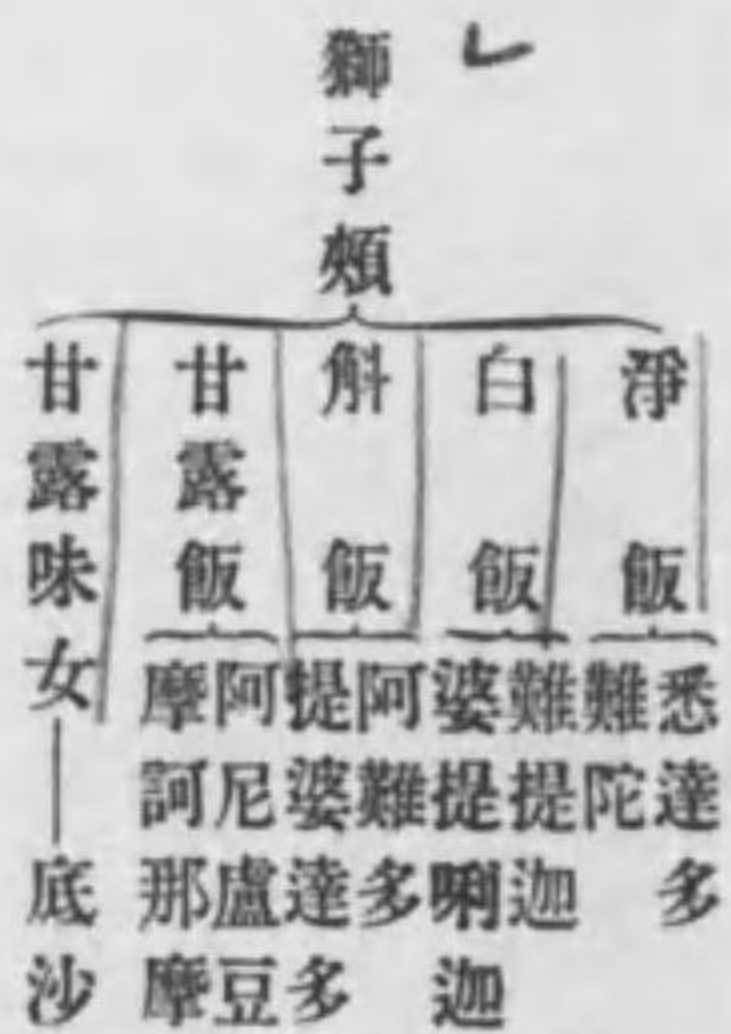 獅子頰
淨飯
悉達多
難陀
白飯
難提迦
婆提唎迦
斛飯
阿難多
提婆達多
甘露飯
阿尼盧豆
摩訶那摩
甘露味女
底沙